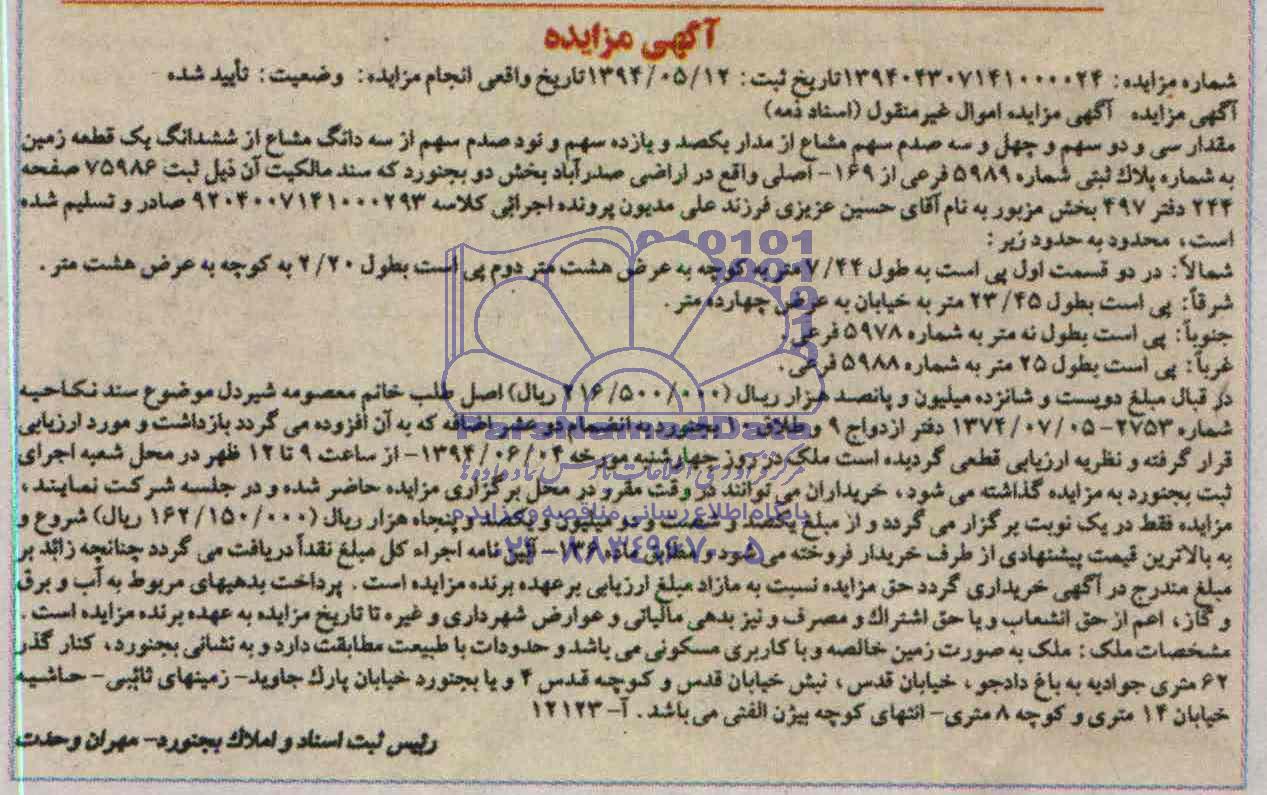 آگهی مزایده
شماره مزایده: ۱۳۹۴۰۴۳۰۷۱۴۱۰۰۰۰۲۴ تاریخ ثبت: ۱۳۹۴/۰۵/۱۲ تاریخ واقعی انجام مزایده: وضعیت: تأیید شده
آگهی مزایده آگهی مزایده اموال غیر منقول (اسناد ذمه)
مقدار سی و دو سهم و چهل و سه صدم سهم مشاع از مدار یکصد و یازده سهم و نود صدم سهم از سه دانگ مشاع از ششدانگ یک قطعه زمین
به شماره پلاک ثبتی شماره ۵۹۸۹ فرعی از ۱۶۹- اصلی واقع در اراضی صدرآباد بخش دو بجنورد که سند مالکیت آن ذیل ثبت ۷۵۹۸۶ صفحه
۲۴۴ دفتر ۴۹۷ بخش مزبور به نام آقای حسین عزیزی فرزند علی مدیون پرونده اجرائی کلاسه ۹۲۰۴۰۰۷۱۴۱۰۰۰۲۹۳ صادر و تسلیم شده
است، محدود به حدود زیر:
شمالاً: در دو قسمت اول پی است به طول ۷/۴۴ متر به کوچه به عرض هشت متر دوم پی است بطول ۲/۲۰ به کوچه به عرض هشت متر.
شرقاً: پی است بطول ۲۳/۴۵ متر به خیابان به عرض چهارده متر.
جنوباً: پی است بطول نه متر به شماره ۵۹۷۸ فرعی.
غرباً: پی است بطول ۲۵ متر به شماره ۵۹۸۸ فرعی.
در قبال مبلغ دویست و شانزده میلیون و پانصد هزار ریال (۲۱۶/۵۰۰/۰۰۰ ریال) اصل طلب خانم معصومه شیردل موضوع سند نکاحیه
شماره ۲۷۵۳-۱۳۷۴/۰۷/۰۵ دفتر ازدواج ۹ و طلاق ۱۰ بجنورد به انضمام دو عشر اضافه که به آن افزوده می گردد بازداشت و مورد ارزیابی
قرار گرفته و نظریه ارزیابی قطعی گردیده است ملک در روز چهارشنبه مورخه ۱۳۹۴/۰۶/۰۴- از ساعت ۹ تا ۱۲ ظهر در محل شعبه اجرای
ثبت بجنورد به مزایده گذاشته می شود، خریداران می توانند در وقت مقرر در محل برگزاری مزایده حاضر شده و در جلسه شرکت نمایند،
مزایده فقط در یک نوبت برگزار می گردد و از مبلغ یکصد و شصت و دو میلیون و یکصد و پنجاه هزار ریال (۱۶۲/۱۵۰/۰۰۰ ریال) شروع و
به بالاترین قیمت پیشنهادی از طرف خریدار فروخته می شود و مطابق ماده ۱۳۶- آیین نامه اجراء کل مبلغ نقداً دریافت می گردد چنانچه زائد بر
مبلغ مندرج در آگهی خریداری گردد حق مزایده نسبت به مازاد مبلغ ارزیابی بر عهده برنده مزایده است. پرداخت بدهیهای مربوط به آب و برق
و گاز، اعم از حق انشعاب و یا حق اشتراک و مصرف و نیز بدهی مالیاتی و عوارض شهرداری و غیره تا تاریخ مزایده به عهده برنده مزایده است.
مشخصات ملک: ملک به صورت زمین خالصه و با کاربری مسکونی می باشد و حدودات با طبیعت مطابقت دارد و به نشانی بجنورد، کنار گذر
۶۲ متری جوادیه به باغ دادجو، خیابان قدس، نبش خیابان قدس و کوچه قدس ۴ و یا بجنورد خیابان پارک جاوید- زمینهای ثائبی- حاشیه
خیابان ۱۴ متری و کوچه ۸ متری- انتهای کوچه بیژن الفتی می باشد. آ-۱۲۱۲۳
رئیس ثبت اسناد و املاک بجنورد- مهران وحدت
ParsNamadData
پایگاه اطلاع رسانی مناقصه و مزایده
۰۲۱-۸۸۳۴۹۶۷۰-۵